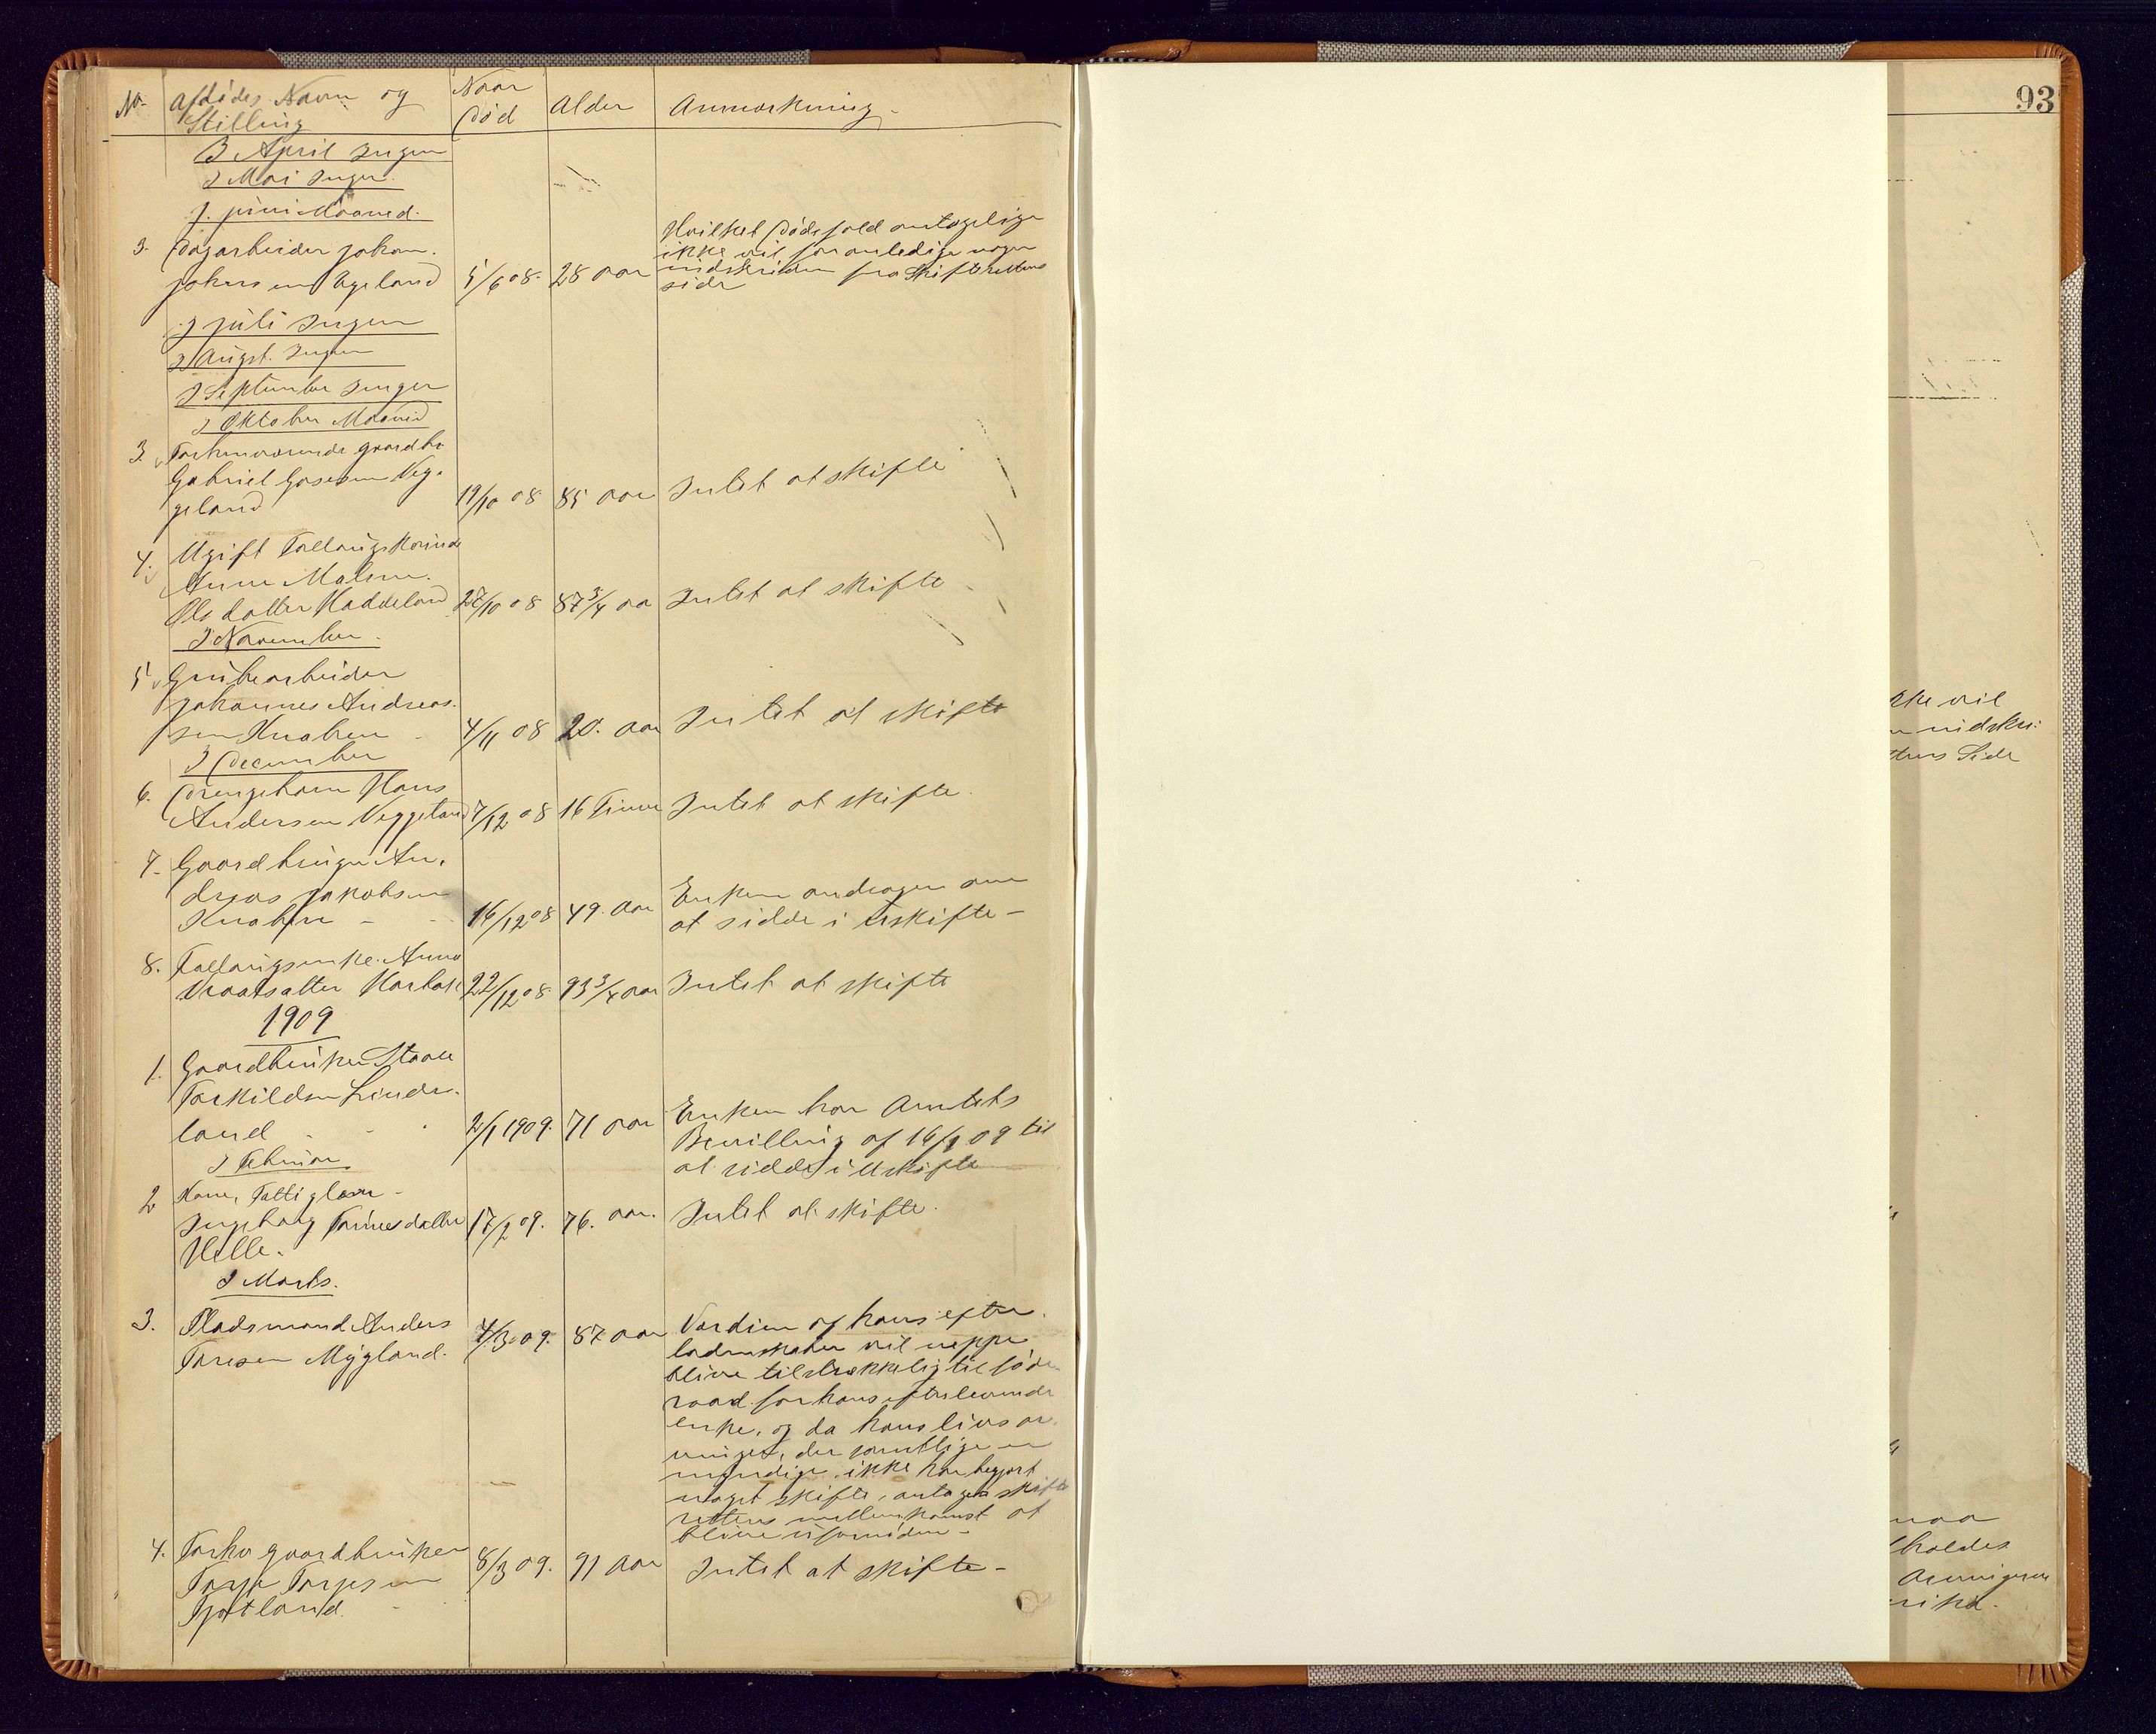 93
No. Afdødes Navn og Stilling Naar Død Alder Anmærkning
I April Ingen
I Mai Ingen
I Juni Maaned.
3. Dagarbeider Johan
Johnsen Øgeland 5/6 08. 28 aar
Hvilket Dødsfald antagelige
ikke vil foranledige nogen
indskriden fra Skifterettens
side
I Juli Ingen
I August. Ingen
I September Ingen
I Oktober Maaned
3. Forhenværende gaardbr
Gabriel Gasesen Veg-
geland 19/10 08 85 aar Intet at skifte
4. Ugift Fattigkvinde
Anne Malene
Olsdatter Haddeland 27/10 08 87 3/4 aa Intet at skifte
I November
5 Grubearbeider
Johannes Andreas-
sen Knaben 4/11 08 20. aar Intet at skifte
I December
6. Drengebarn Hans
Andersen Veggeland 7/12 08 16 Timer Intet at skifte
7. Gaardbruger An-
dreas Jakobsen
Knaben 16/12 08 49. aar
Enken andrager om
at sidde i Uskifte -
8. Fattigenke Anna
22/12 08. 93 3/4 aar Intet at skifte
1909
1. Gaardbruker Staale
Torkildsen Linde-
land 2/1 1909. 71 aar
Enken har Amtets
Bevilling af 16/1 09 til
at sidde i Uskifte
I Februar
2 Kone, Fattiglem
Ingeborg Tønnesdatter
Helle. 17/2 09. 76. aar. Intet at skifte.
I Marts.
3. Pladsmand Anders
Taresen Mygland. 4/3 09. 87 aar
Værdien af hans efter-
ladenskaber vil neppe
blive tilstrækkelig til føde-
raad for hans efterlevende
enke, og da hans livsar-
vinger, der samtlige er
myndige, ikke har begjært
noget skifte, antages skifte
rettens mellemkomst at
blive ufornøden -
4. Forhv gaardbruker
Tarje Tarjesen
Gjotland. 8/3 09. 91 aar Intet at skifte -
kke vil
indskri-
ttens Side
maa
holdes
Arvingerne